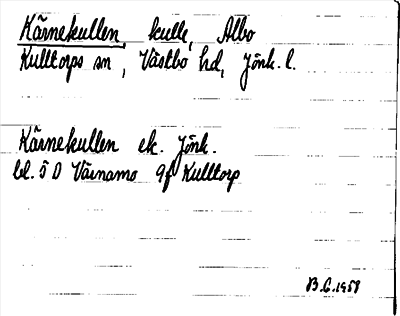 Kärnekullen, kulle, Albo
Kulltorps sn, Västbo hd, Jönk. l.
Kärnekullen ek. Jönk.
bl. 5 D Värnamo 9f Kulltorp
B.G. 1958